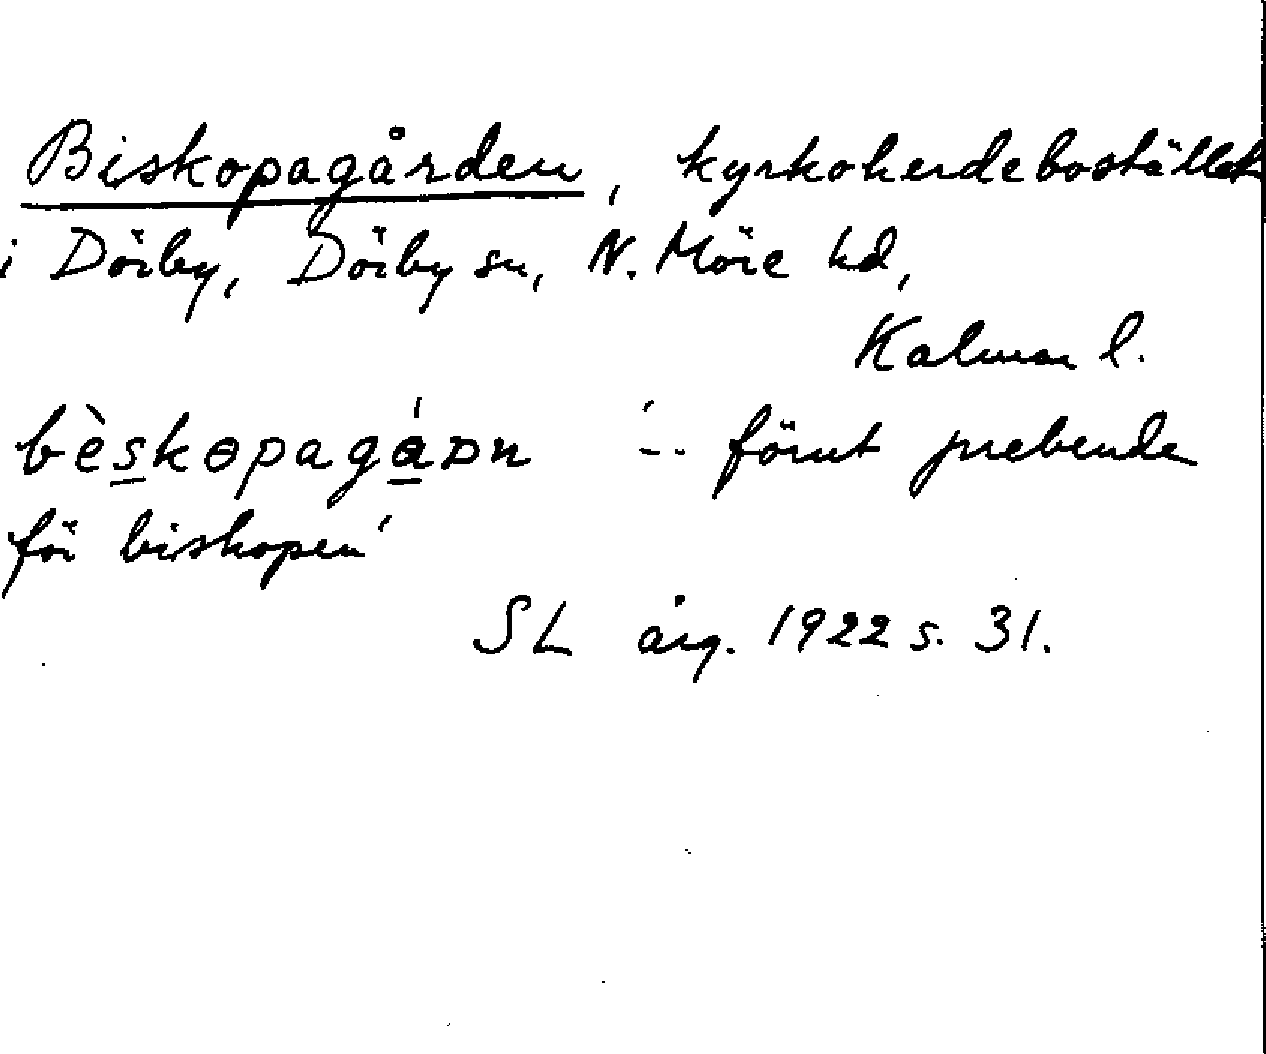 Biskopagården, kyrkoherdebostället
i Dörby, Dörby sn, N. Möre hd,
Kalmar l.
bèskɵpagáɒn ´-- förut prebende
för biskopen´
SL årg. 1922 s. 31.